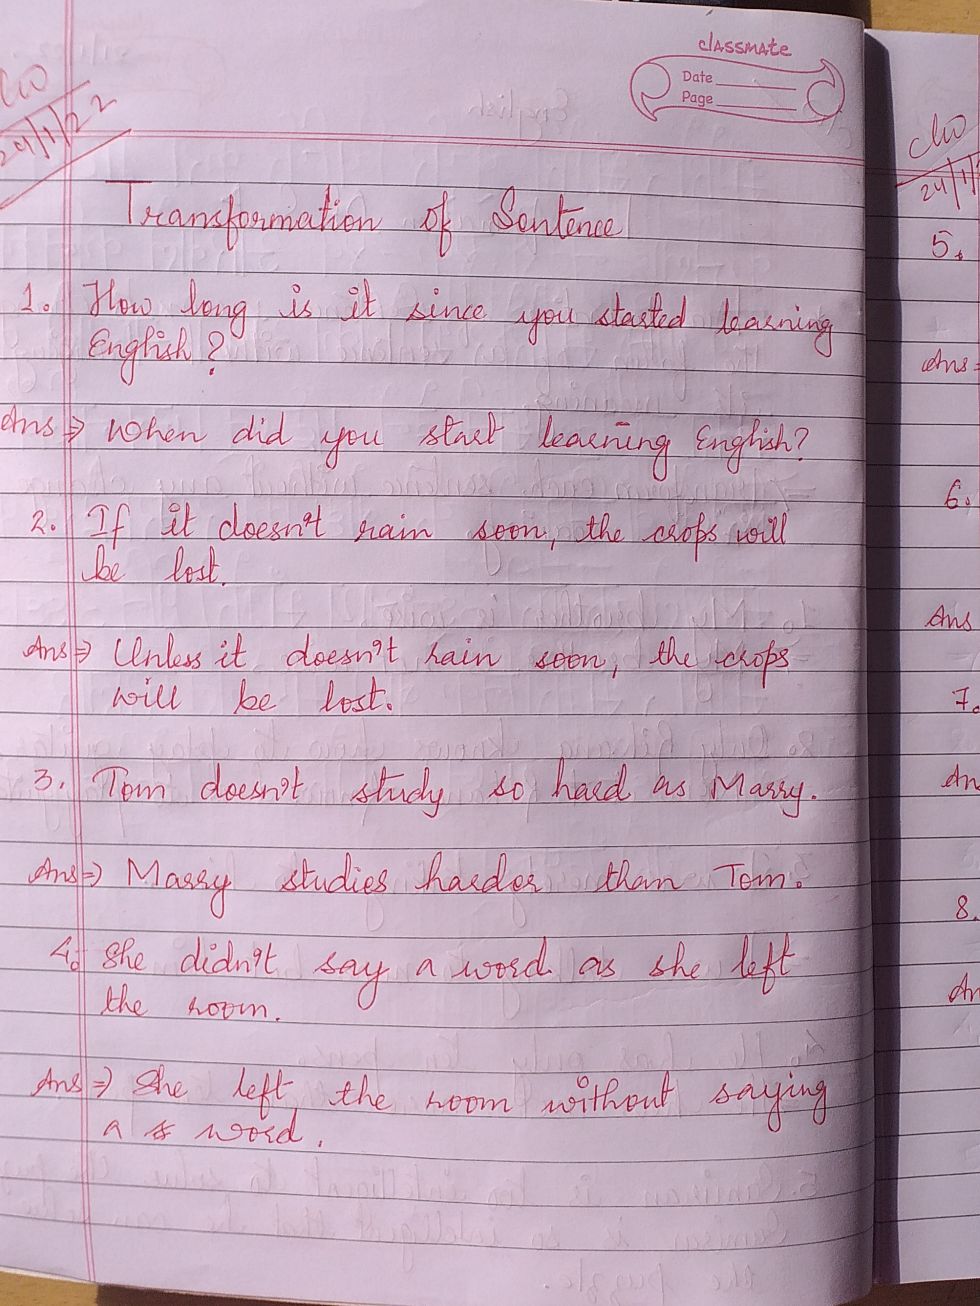 classmate
Date
Page
C/W
24/1/22
Transformation of Sentence
1. How long is it since you started learning
English?
Ans ⇒ When did you start learning English?
2. If it doesn't rain soon, the crops will
be lost.
Ans ⇒ Unless it doesn't rain soon, the crops
will be lost.
3. Tom doesn't study so hard as Marry.
Ans ⇒ Marry studies harder than Tom.
4. She didn't say a word as she left
the room.
Ans ⇒ She left the room without saying
a word.
C/W
24/1/
5.
Ans =
6.
Ans
7.
An
8.
An